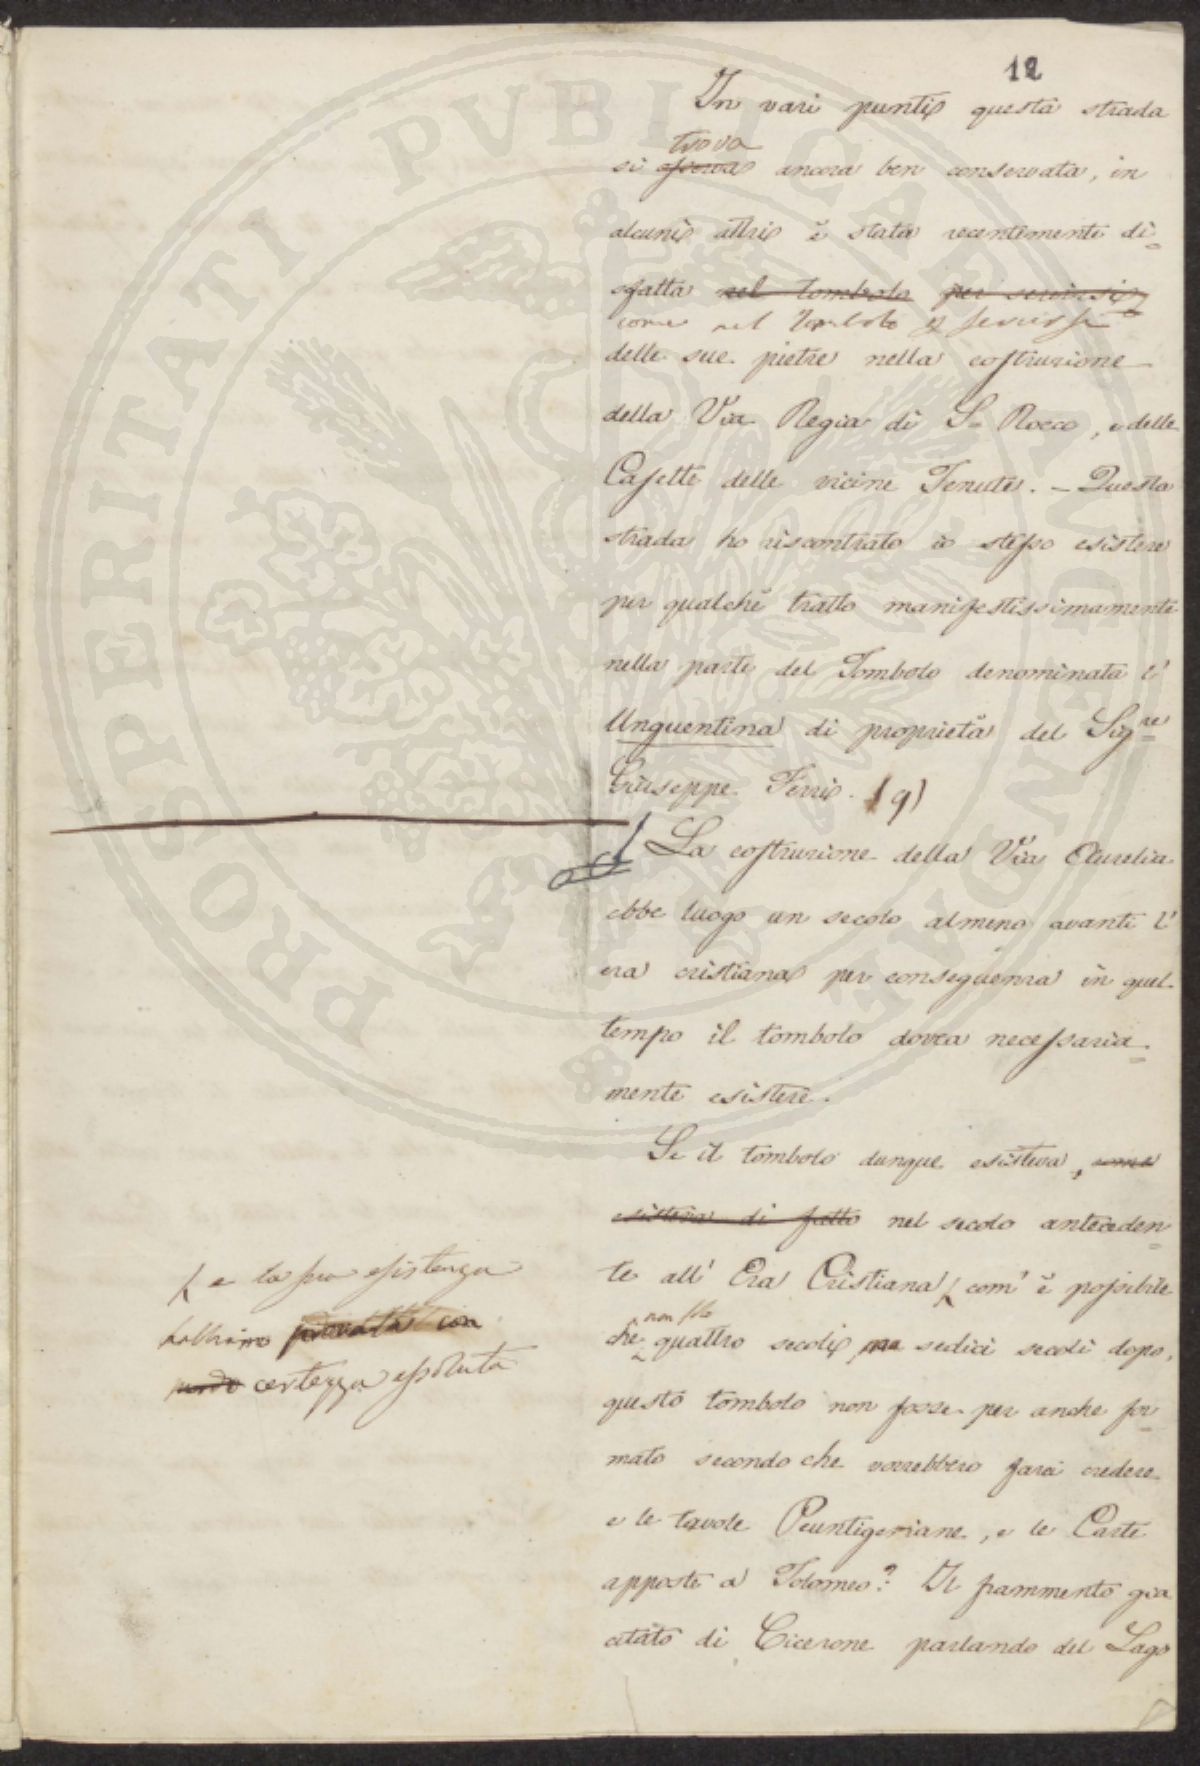 12
In vari punti questa strada
trova
si osserva ancora ben conservata, in
alcuni altri è stata recentemente di=
sfatta nel tombolo per servirsi
come nel Tombolo p servirsi
delle sue pietre nella costruzione
della Via Regia di S. Rocco, e delle
Casette delle vicine Tenute. - Questa
strada ho riscontrato io stesso esistere
per qualche tratto manifestissimamente
nella parte del Tombolo denominata l'
Unguentina di proprietà del Sigre
Giuseppe Ferri. (9)
La costruzione della Via Aurelia
ebbe luogo un secolo almeno avanti l'
era cristiana per conseguenza in quel
tempo il tombolo dovea necessaria=
mente esistere.
Se il tombolo dunque esisteva, come
esisteva di fatto nel secolo anteceden=
te all' Era Cristiana, com' è possibile
non solo
che quattro secoli, ma sedici secoli dopo,
questo tombolo non fosse per anche for=
mato secondo che vorrebbero farci credere
e le tavole Peuntigeriane, e le Carte
apposte a Tolomeo? Il frammento già
citato di Cicerone parlando del Lago
e la sua esistenza
abbiamo provata con
certezza assoluta
PROSPERITATI PVBLICAE AVGENDAE